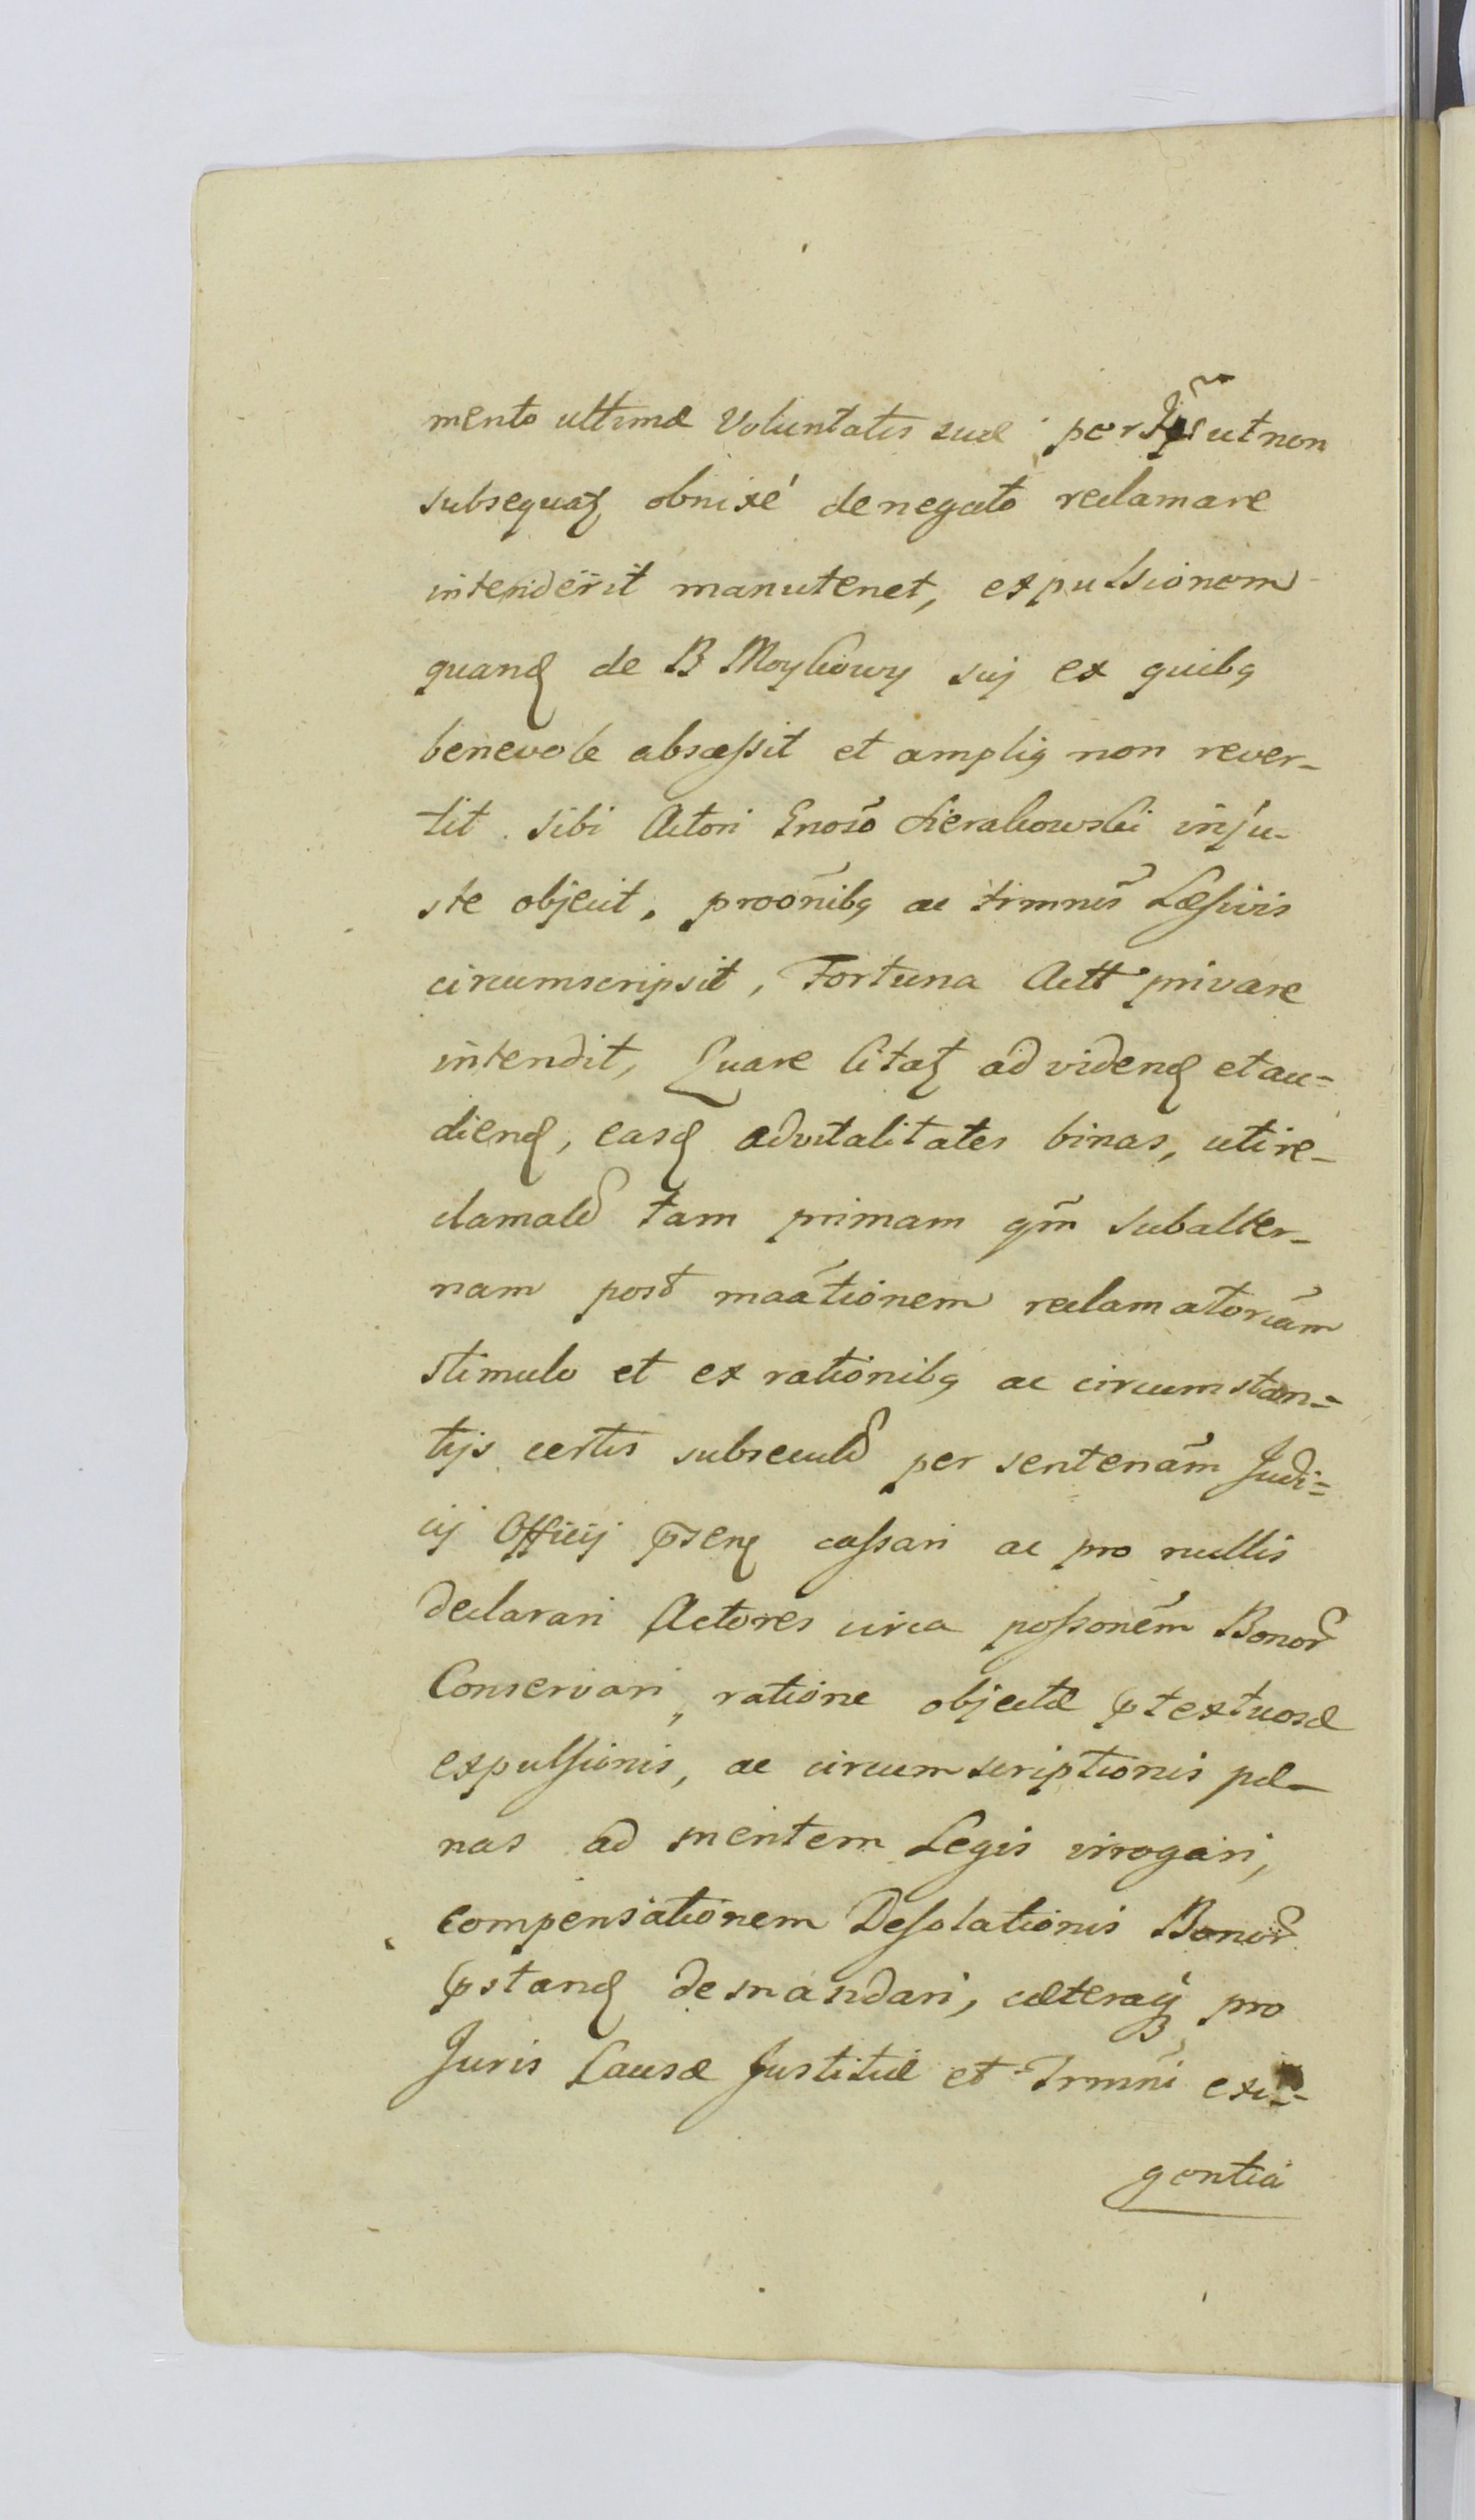 mento ultimæ Voluntatis suæ per ut non
subsequat obnixé denegato reclamare
intenderit manutenet, expulsionem
quand de B Moykowy sui ex quibq
benevole absceſsit et ampliq non rever-
tit. sibi Actori Gnoso Sierakowski inju-
ste objecit, proõnibq ac trmnis Læſivis
circumscripsit, Fortuna Actt privare
intendit, Quare Citat ad videnđ et au-
dienđ, easđ advitalitates binas, uti re-
clamatô tam primam qm̃ subalter-
nam post maãtionem reclamatoriam
stimulo et ex rationibq ac circumstan-
tijs certis subsecutô per sentenãm Judi-
cij Officij pñsen caſsari ac pro nullis
declarari Actores circa poſsonẽm Bonor
Conservari, ratione objectæ ptextuosæ
expulſionis, ac circumscriptionis pæ-
nas ad mentem Legis irrogari,
compensationem Deſolationis Bonor
pstanđ demandari, cæteraq pro
Juris Causæ Justitiæ et Trmñi exi-
gentia